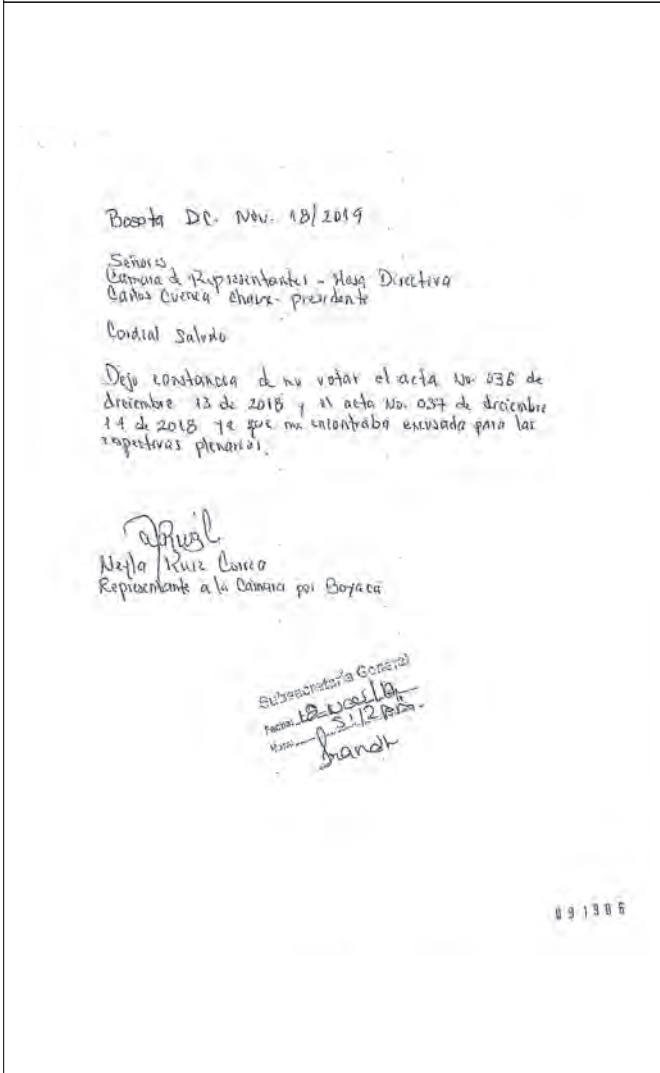 Bogota DC. Nov. 18/2019
Señores
Cámara de Representantes - Mesa Directiva
Carlos Cuenca Chaux - presidente
Cordial Saludo
Dejo constancia de no votar el acta No. 036 de
diciembre 13 de 2018 y el acta No. 037 de diciembre
14 de 2018 ya que me encontraba excusada para las
respectivas plenarias.
Neyla Ruiz Correa
Representante a la Cámara por Boyacá
Subsecretaría General
Fecha: 18-Nov/19
Hora: 5:12 pm.
091906